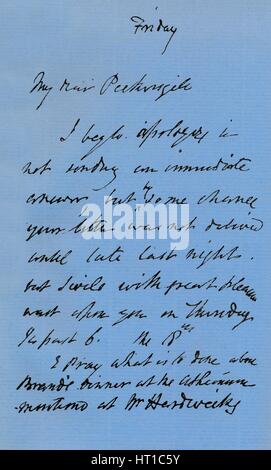 Friday
My dear Pickersgill
I beg to apologise in
not sending an immediate
answer but by some chance
your letter was not delivered
until late last night.
but I will with great pleasure
wait upon you on Thursday
¼ past 6. the 8th
& Pray what is to done about
Brand's dinner at the Athenaeum
mentioned at Mr Hardwick's
alamy
Image ID: HT1C5Y
www.alamy.com